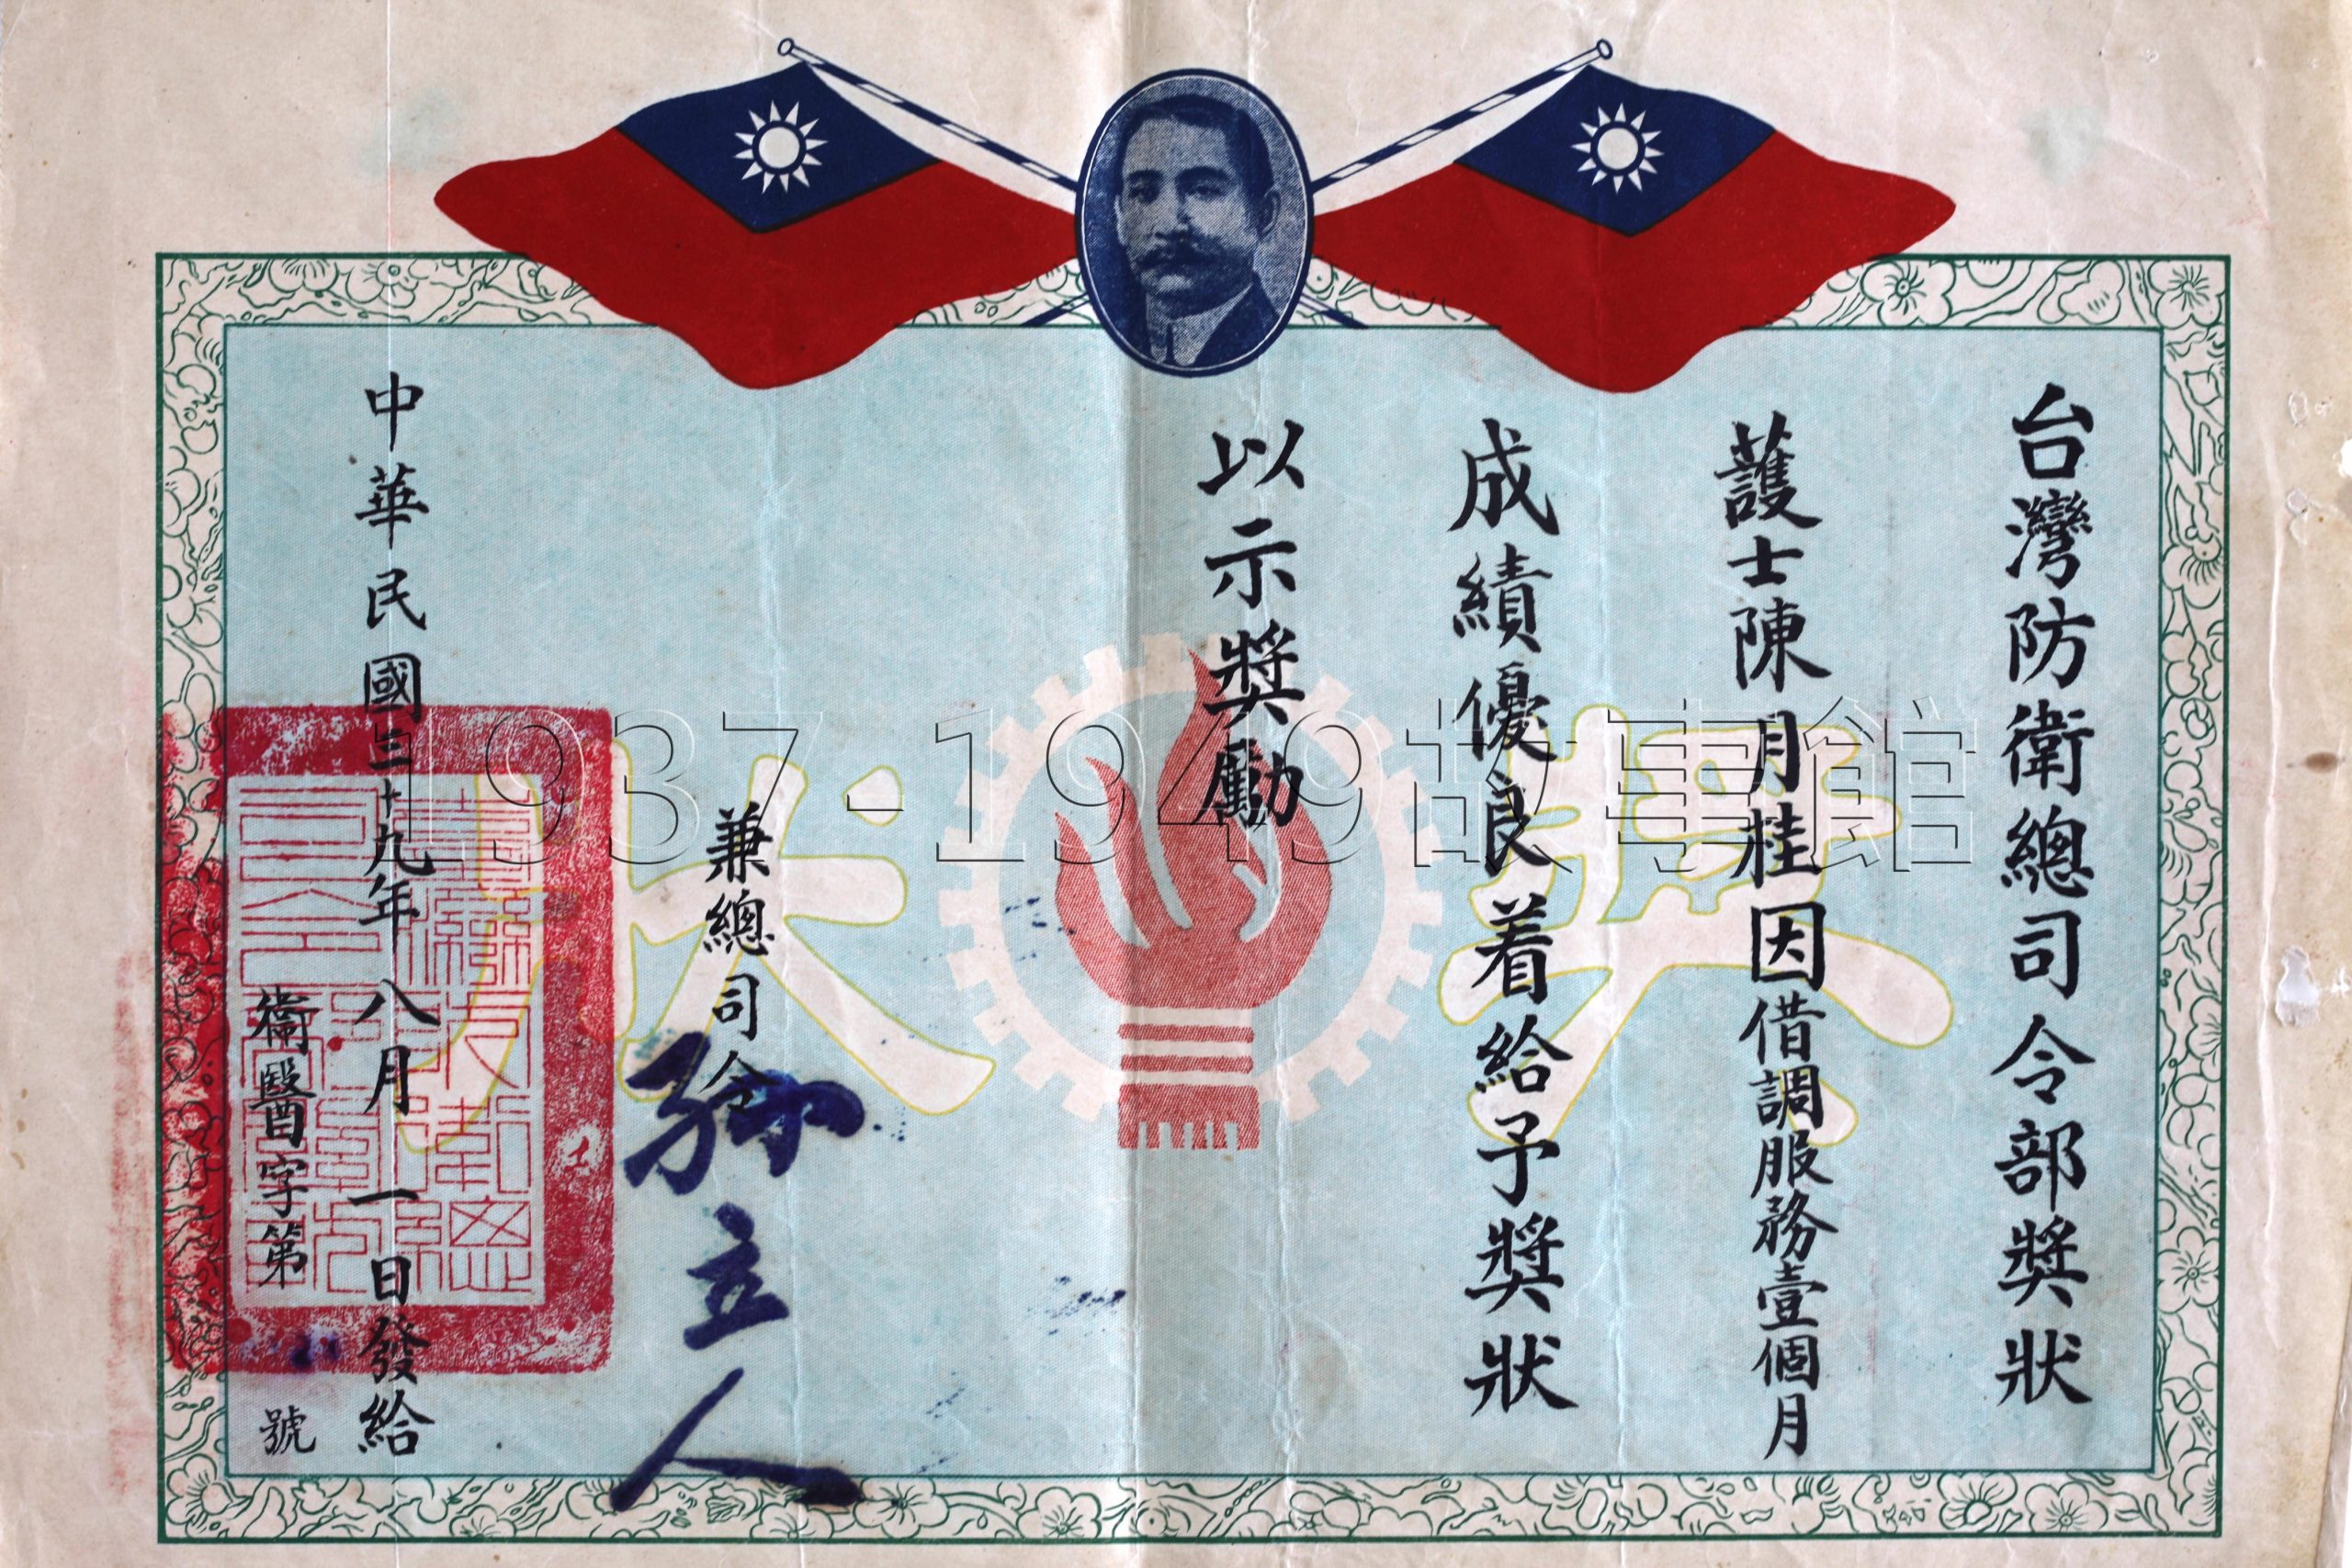 台灣防衛總司令部獎狀
護士陳月桂因借調服務壹個月
成績優良着給予獎狀
以示獎勵
兼總司令
孫立人
中華民國三十九年八月一日發給
衛醫字第 號
獎狀
1937-1949故事館